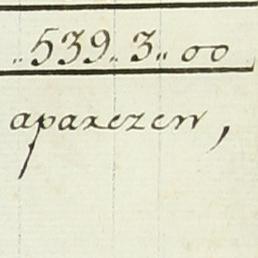 ..539..3..00
aparezen,